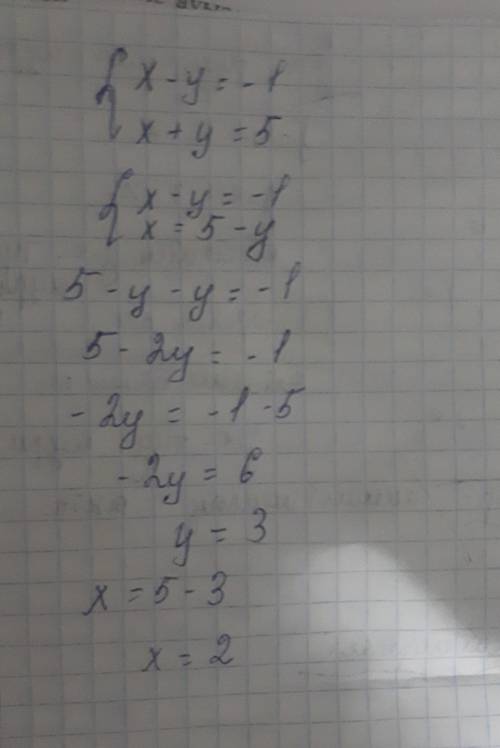 { x - y = -1
x + y = 5
{ x - y = -1
x = 5 - y
5 - y - y = -1
5 - 2y = -1
- 2y = -1 - 5
- 2y = 6
y = 3
x = 5 - 3
x = 2